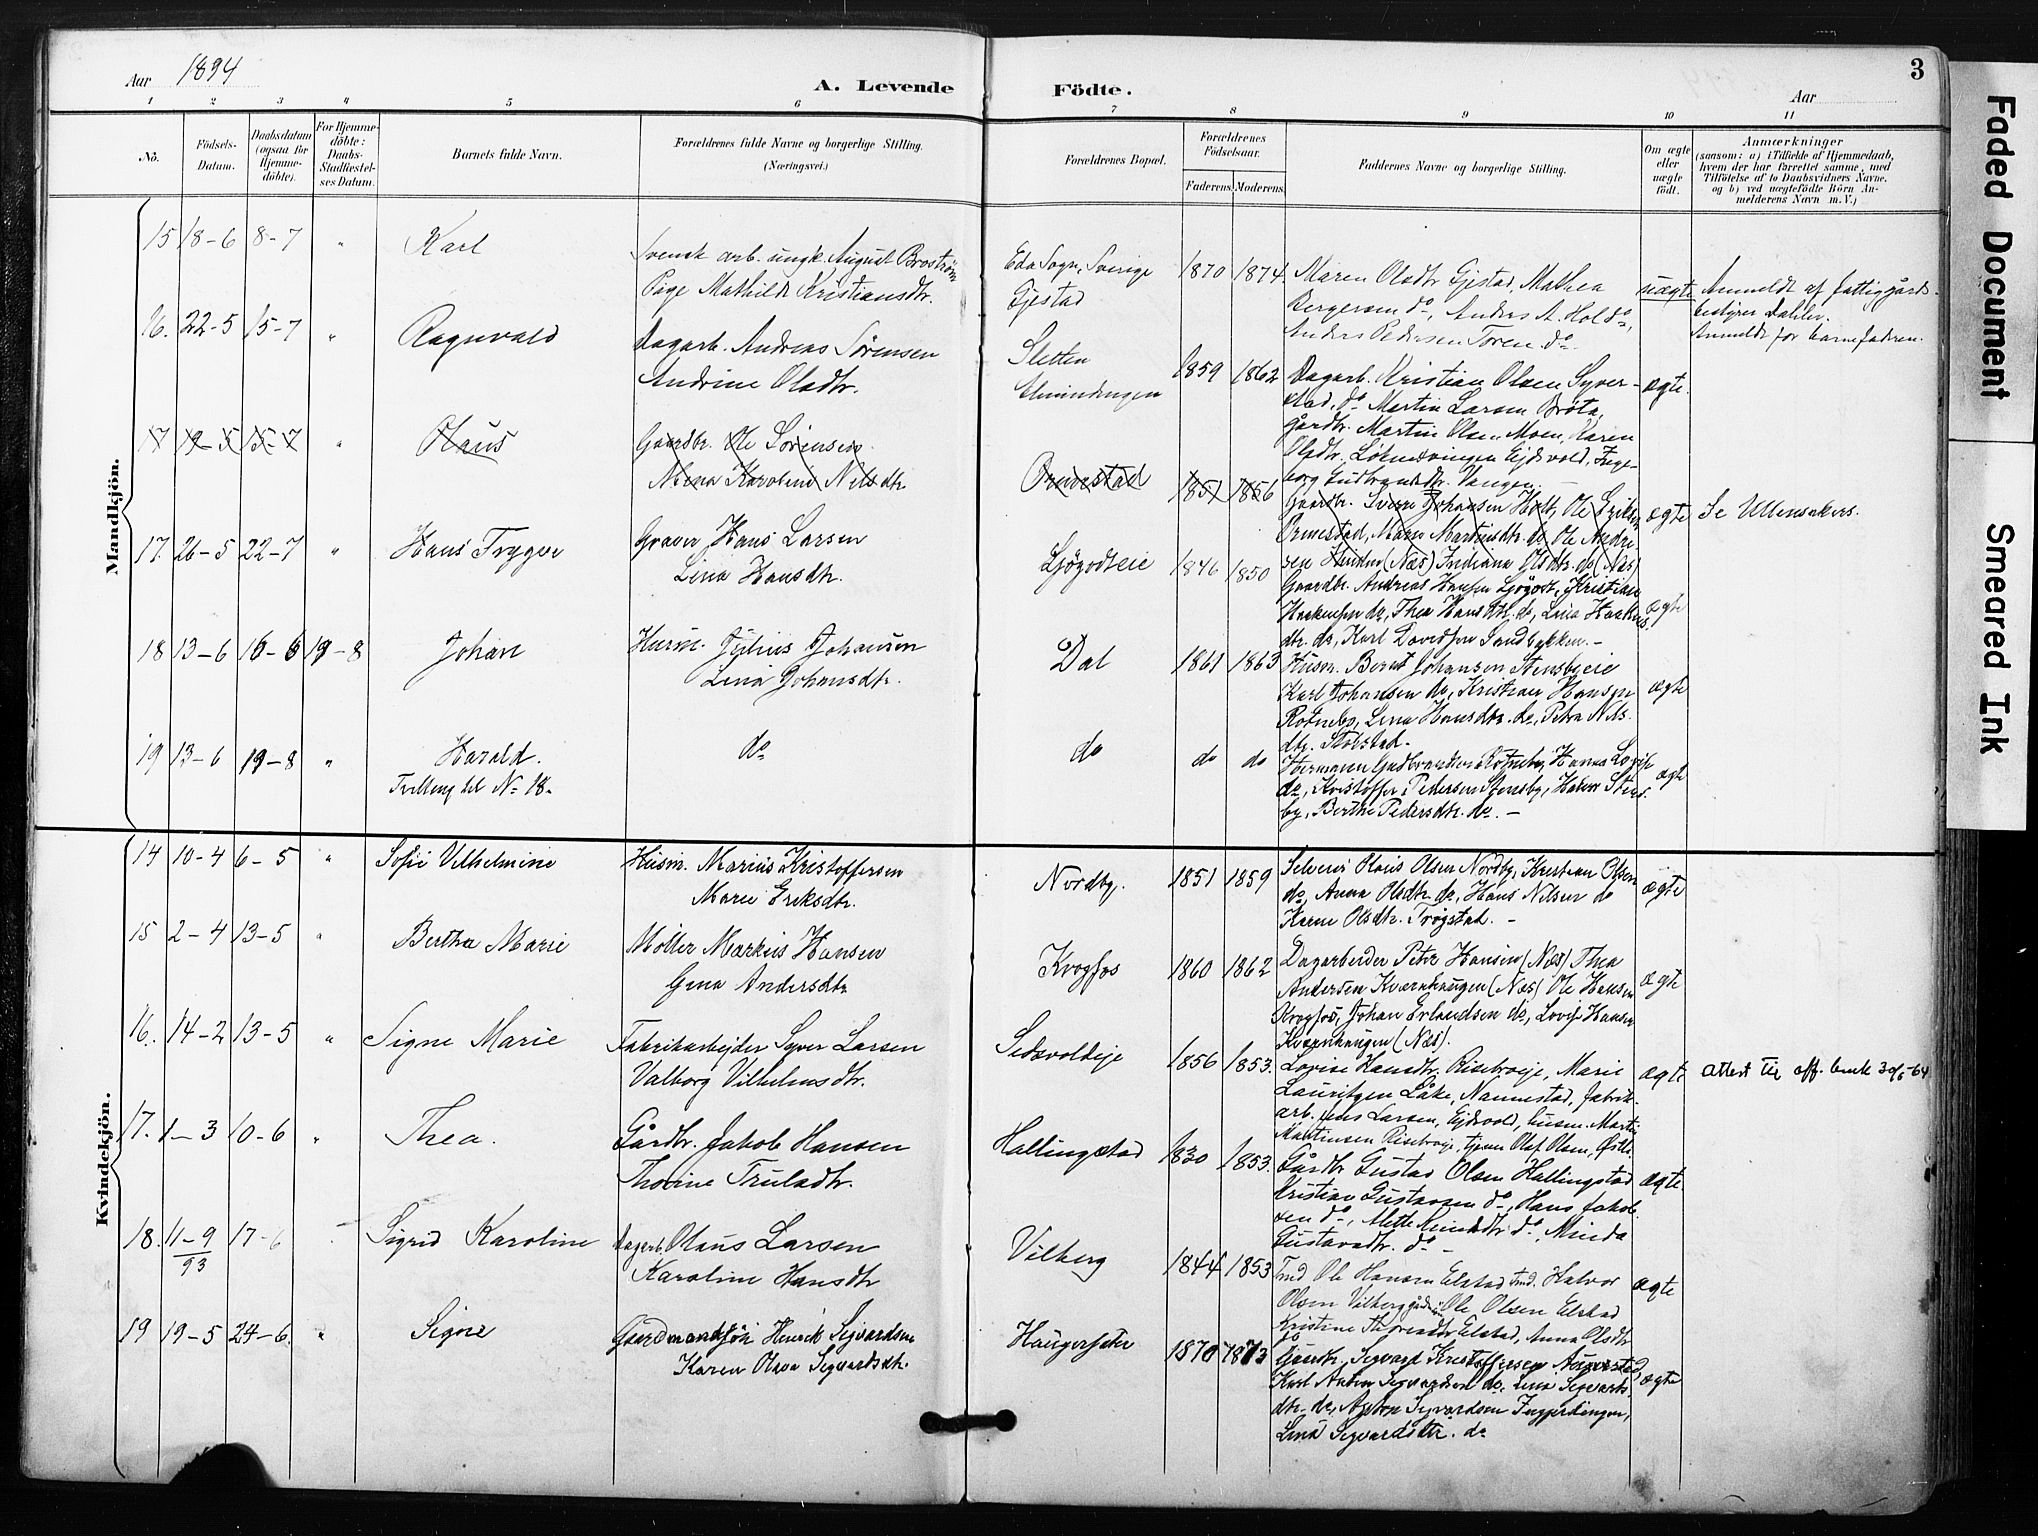 3
Aar 1894
A. Levende Födte.
Aar
1 2 3 4 5 6 7 8 9 10 11
No.
Födsels-Datum.
Daabsdatum (ogsaa for Hjemme-döbte).
For Hjemme-döbte: Daabs-Stadfæstel-ses Datum.
Barnets fulde Navn.
Forældrenes fulde Navne og borgerlige Stilling.
(Næringsvei.)
Forældrenes Bopæl.
Forældrenes Födselsaar.
Faderens. Moderens.
Faddernes Navne og borgerlige Stilling.
Om ægte eller uægte födt.
Anmærkninger
(saasom: a) i Tilfælde af Hjemmedaab,
hvem der har forrettet samme, med
Tilföielse af to Daabsvidners Navne,
og b) ved uægtefödte Börn An-
melderens Navn m. V.)
Mandkjön.
15 18-6 8-7 " Karl
Svensk arb. ungk. August Broström
Pige Mathilde Kristiansdtr.
Eda Sogn, Sverige
Gjestad
1870 1874
Maren Olsdtr Gjestad, Mathea
Bergersen do, Anders A. Hol do,
Anders Pedersen Toren do.
uægte
Anmeldt af fattiggårds-
bestyrer Dahler.
Anmeldt for barnefaderen.
16. 22-5 15-7 " Ragnvald
Dagarb. Andreas Sörensen
Andrine Olsdtr.
Sletten
Almindingen
1859 1862
Dagarb. Kristian Olsen Syver-
stad, do Martin Larsen Bröta,
gårdbr. Martin Olsen Moen, Karen
Olsdtr. Eidsvold, Inge-
borg Gudbrandsdtr. Vangen.
ægte.
17 19-5 15-7 " Olaus
Gaardbr. Ole Sörensen.
Mina Karoline Nilsdtr.
Ormestad
1851 1856
Gaardbr. Johansen Holt, Ole Eriksen
Ormestad, Maren Martinsdtr. do Ole Andre-
sen (Næs) Indiana Olsdtr. do (Næs)
ægte
Se Ullensaker.
17. 26-5 22-7 " Hans Trygve
Graver Hans Larsen
Lina Hansdtr.
Ljögodteie
1846 1850
Gaardbr. Andreas Hansen Ljögodt, Kristian
Haakensen do, Thea Hansdtr. do, Lina Haakens-
dtr. do, Karl Davidsen Sandbykken.-
ægte
18 13-6 16-6 19-8 Johan
Husm. Julius Johansen
Lina Johansdtr.
Dal
1861 1863
Husm. Bernt Johansen Stensbyeie
Karl Johansen do, Kristian Hansen
Rotnebo, Lina Hansdtr. do, Petra Nils-
dtr.
ægte
19 13-6 19-8 " Harald.
Tvilling til No 18.
do
do
do do
Hermann Gudbrandsen Rotnebo, Hanna Lovise
do, Kristoffer Pedersen Stensby, Halvor Stens-
by, Berthe Pedersdtr. do. -
ægte
Kvindekjön.
14 10-4 6-5 " Sofie Vilhelmine
Husm. Marius Kristoffersen
Marie Eriksdtr.
Nordby.
1851 1859
Selveier Olaus Olsen Nordby, Kristian Olsen
do, Anna Olsdtr. do, Hans Nilsen do
Karen Olsdtr. Trögstad. -
ægte
15 2-4 13-5 " Berthe Marie
Möller Markus Hansen
Gina Andersdtr.
Krogfos
1860 1862
Dagarbeider Peter Hansen (Næs) Thea
Andersen Kværnhaugen (Næs) Ole Hansen
Krogfos, Johan Erlandsen do, Lovise Hansen
Kværnhaugen (Næs).
ægte
16. 14-2 13-5 " Signe Marie
Fabrikarbejder Syver Larsen
Valborg Vilhelmsdtr.
1856 1853.
Lovise Hansdtr. Risebroeje, Marie
Lauritzen Låke, Nannestad, fabrik-
arb. Jens Larsen, Eidsvold, husm. Martin
Martinsen Risebroeje, tjener Olaf Olsen,
ægte
attest til off. bruk 30/5-64
17. 1-3 10-6 " Thea.
Gårdbr. Jakob Hansen
Thorine Trulsdtr.
Hallingstad
1830 1853.
Gårdbr Gustav Olsen Hallingstad
Kristian Gustavsen do, Hans Jakob-
sen do, Mette do, Minda
Gustavsdtr. do -
ægte.
18. 11-9/93 17-6 Sigrid Karoline
Dagarb. Olaus Larsen
Karoline Hansdtr
Vilberg
1844 1853
Tmd Ole Hansen Elstad Tmd. Halvor
Olsen Vilberg Ole Olsen Elstad
Kristine Elstad, Anna Olsdtr
do
ægte
19 19-5 24-6. " Signe
Gaardmandssön Henrik Sigvardsen
Karen Olava Sigvardsdtr.
Haugerseter
1870 1873
Gaardbr. Sigvard Kristoffersen
Karl Anton Sigvardsen do, Lina Sigvards-
dtr. do, Anton Sigvardsen
Lina Sigvardsdtr. do
ægte
Faded Document
Smeared Ink